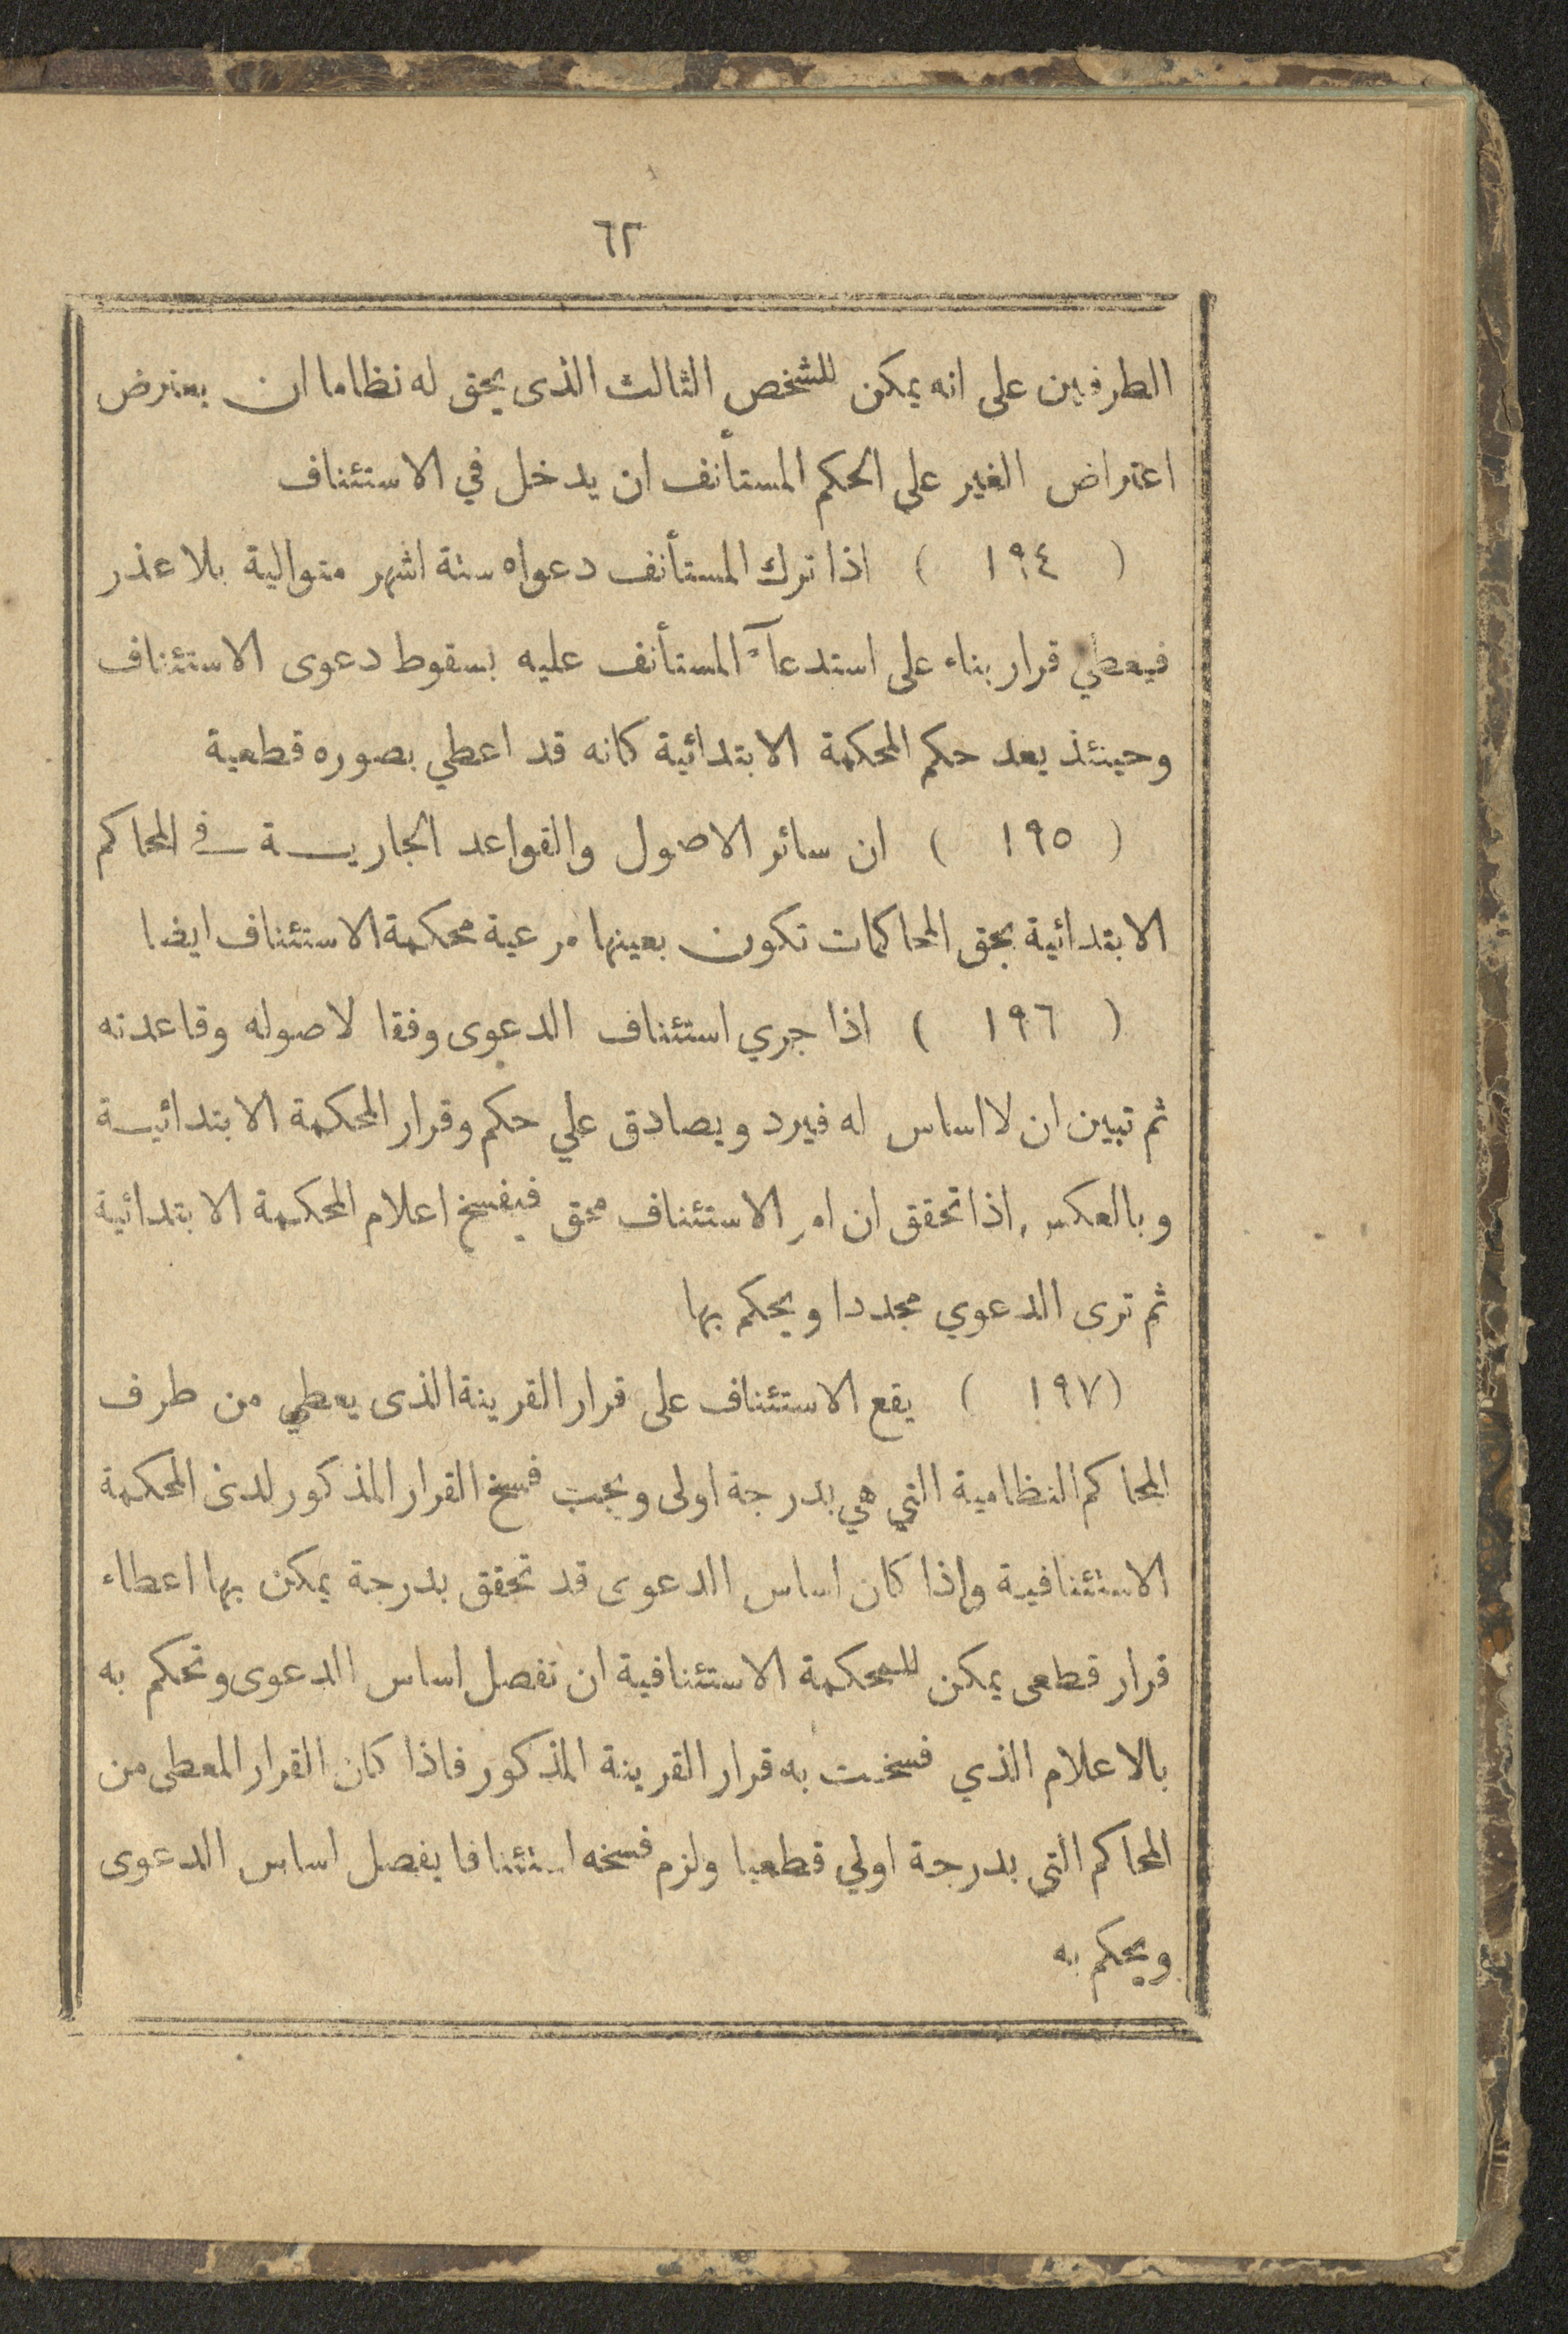 ٦٢
الطرفين على انه يمكن للشخص الثالث الذى يحق له نظاما ان يعترض
اعتراض الغير على الحكم المستأنف ان يدخل في الاستئناف
( ١٩٤ ) اذا ترك المستأنف دعواه ستة اشهر متوالية بلا عذر
فيعطي قرار بناء على استدعآء المستأنف عليه بسقوط دعوى الاستئناف
وحينئذ يعد حكم المحكمة الابتدائية كانه قد اعطي بصوره قطعية
( ١٩٥ ) ان سائر الاصول والقواعد الجارية في المحاكم
الابتدائية بحق المحاكمات تكون بعينها مرعية محكمة الاستئناف ايضا
( ١٩٦ ) اذا جري استئناف الدعوى وفقا لاصوله وقاعدته
ثم تبين ان لا اساس له فيرد ويصادق علي حكم وقرار المحكمة الابتدائية
وبالعكس اذا تحقق ان امر الاستئناف محق فيفسخ اعلام المحكمة الابتدائية
ثم ترى الدعوي مجددا ويحكم بها
(١٩٧ ) يقع الاستئناف على قرار القرينة الذى يعطي من طرف
المحاكم النظامية التي هي بدرجة اولى ويجب فسخ القرار المذكور لدى المحكمة
الاستئنافية واذا كان اساس الدعوى قد تحقق بدرجة يمكن بها اعطاء
قرار قطعى يمكن للمحكمة الاستئنافية ان تفصل اساس الدعوى وتحكم به
بالاعلام الذي فسخت به قرار القرينة المذكور فاذا كان القرار المعطى من
المحاكم التي بدرجة اولي قطعيا ولزم فسخه استئنافا يفصل اساس الدعوى
ويحكم به